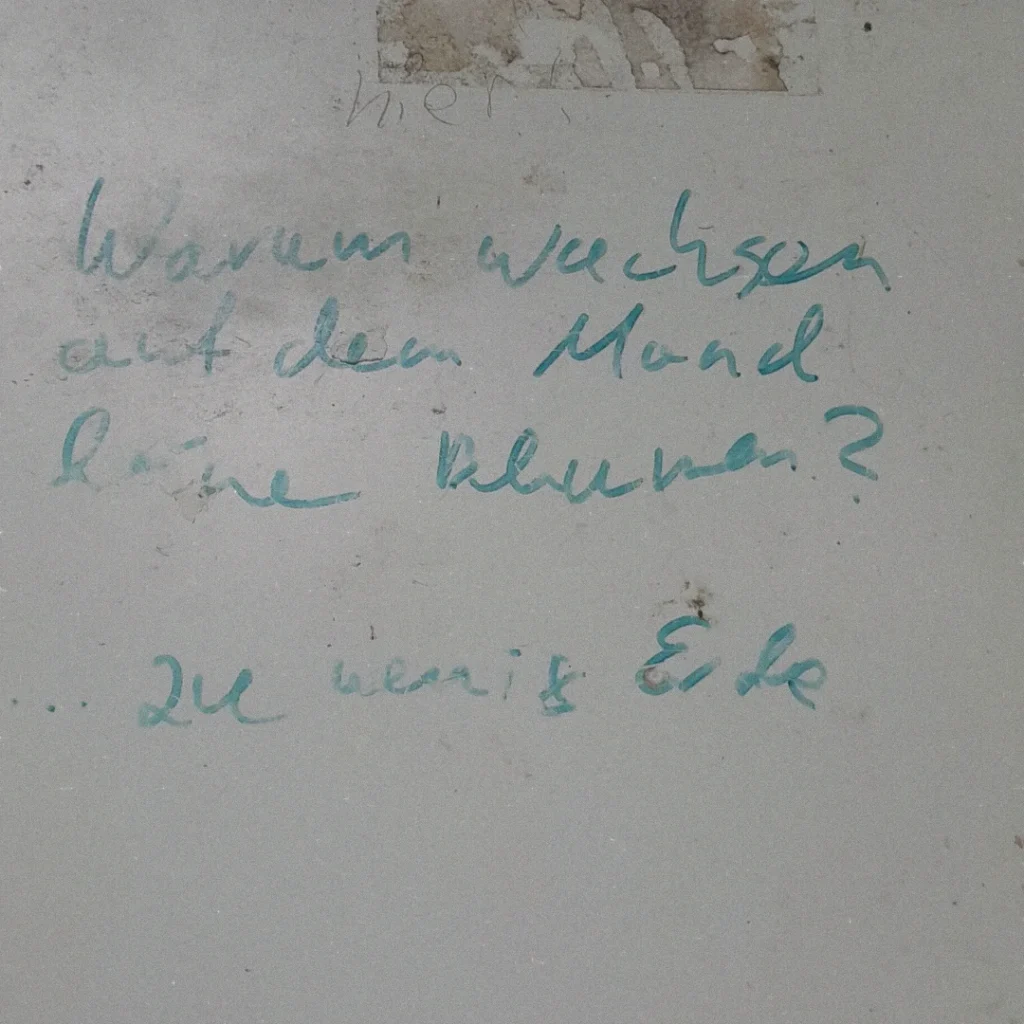 hier!
Warum wachsen
auf dem Mond
keine Blumen?
... zu wenig Erde